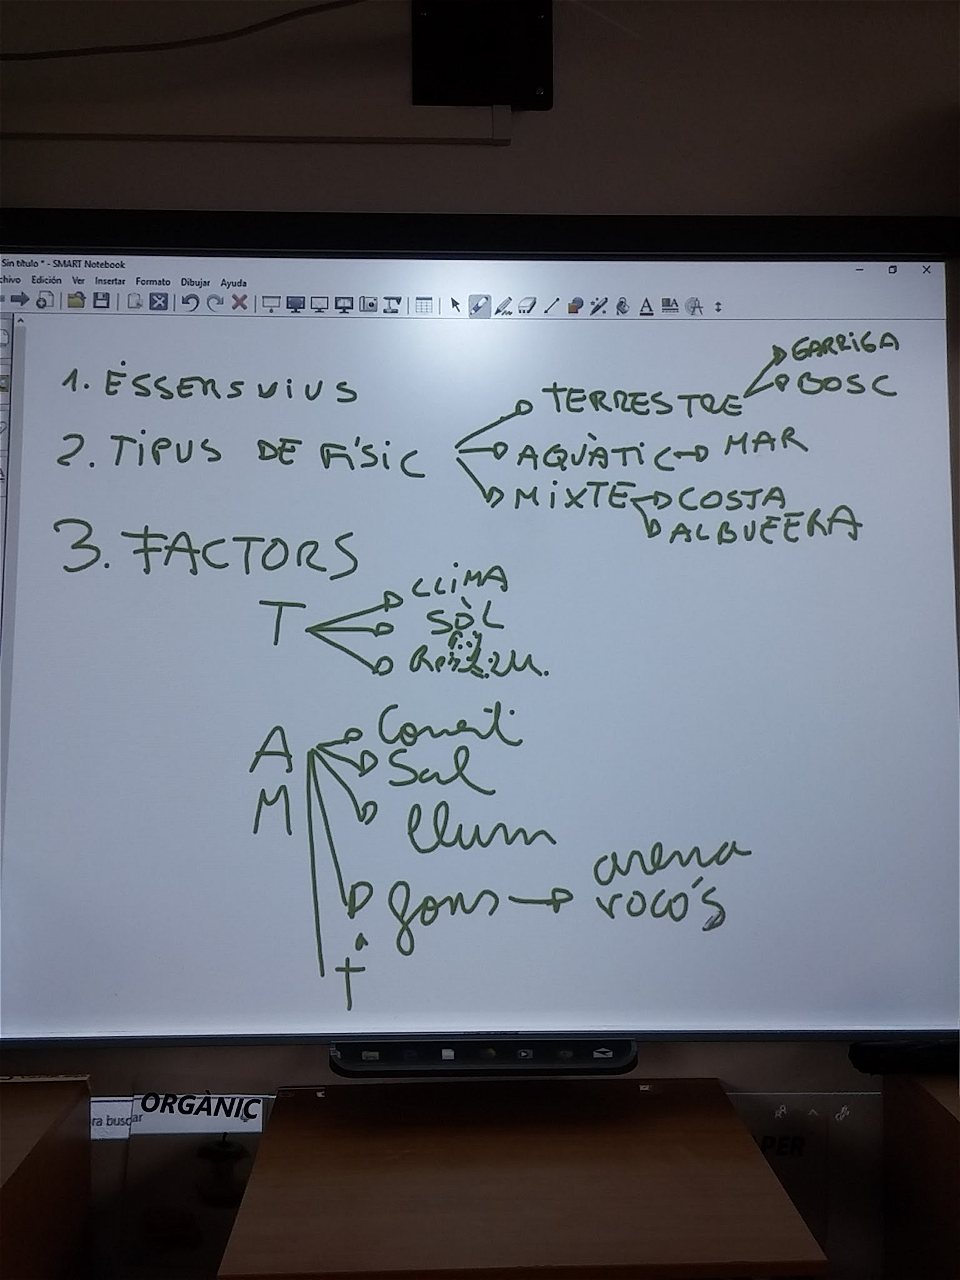 Sin título * - SMART Notebook
chivo Edición Ver Insertar Formato Dibujar Ayuda
1. ÉSSERS VIUS
2. TIPUS DE FÍSIC
TERRESTRE
GARRIGA
BOSC
AQUÀTIC
MAR
MIXTE
COSTA
ALBUFERA
3. FACTORS
T
CLIMA
SÒL
A
M
Sal
llum
fons
arena
rocós
tª
ORGÀNIC
ra buscar
PER